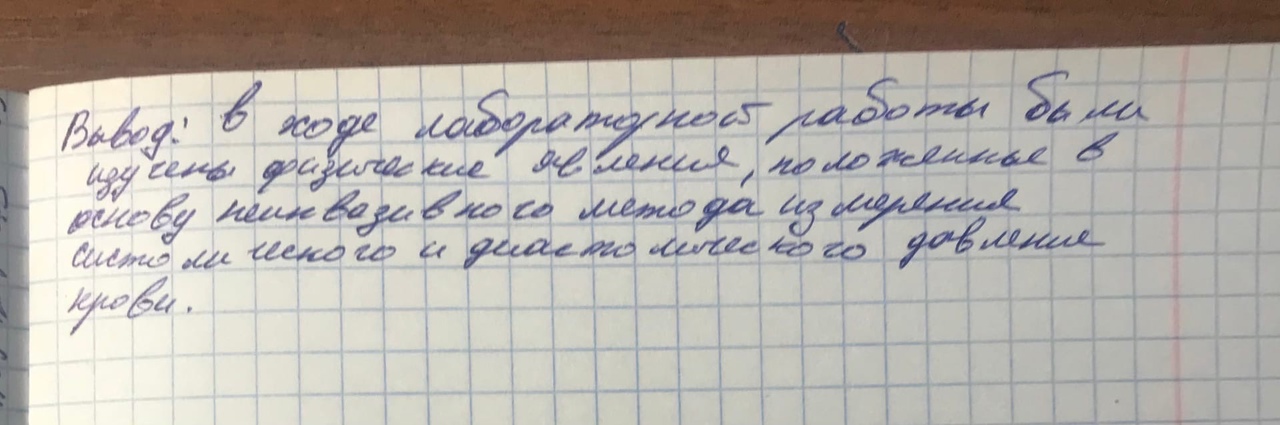 Вывод: в ходе лабораторной работы были
изучены физические явления, положенные в
основу неинвазивного метода измерения
систолического и диастолического давления
крови.